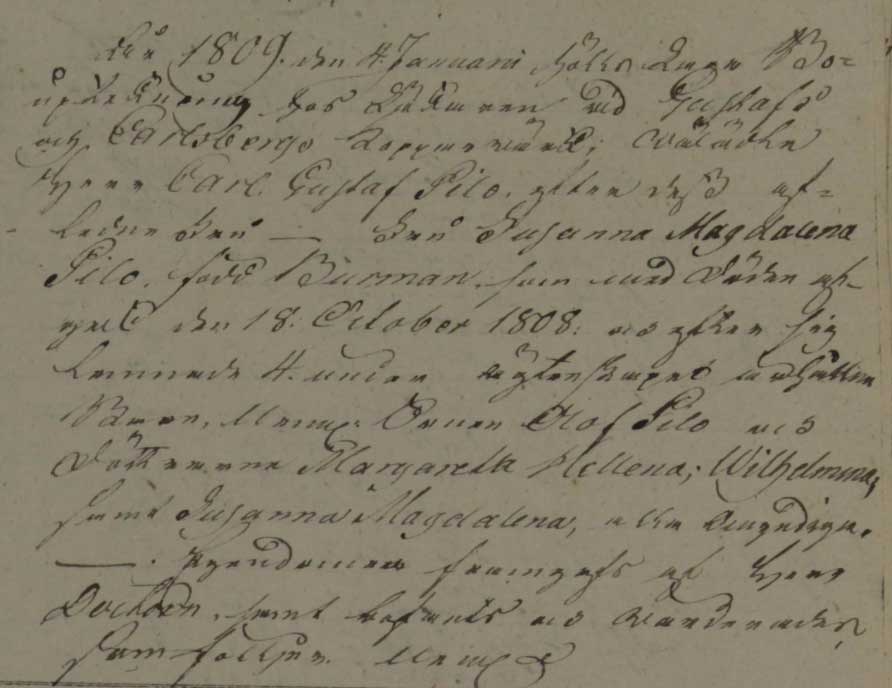 År 1809. den 4. Januari hölls Laga Bo=
upteckning hos Läkaren vid Gustafs
och Carlsbergs Kopparwärk; Wälädle
Herr Carl Gustaf Pilo, efter dess af=
ledne Fru — Fru Susanna Magdalena
Pilo, född Burman, som med döden af=
gick den 18. October 1808. och efter sig
lemnade 4. under ägtenskapet
Barn, Nemp. Sonen Olof Pilo och
Döttrarna Margareta Hellena; Wilhelmina,
samt Susanna Magdalena, alla omyndiga.
— . Egendomen framgafs af Herr
Doctorn, samt befants och Värderades,
som följer. Nemp